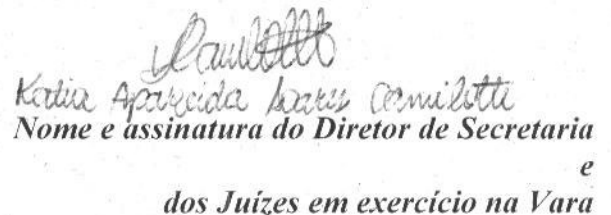 Camilotti
Katia Aparecida Soares Camilotti
Nome e assinatura do Diretor de Secretaria
e
dos Juízes em exercício na Vara